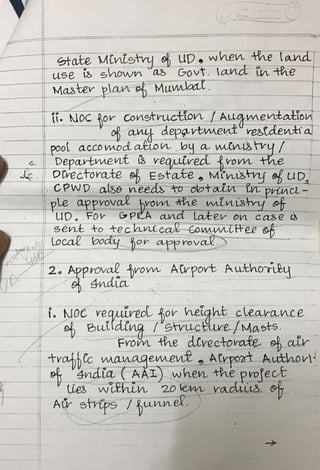 State Ministry of UD. when the land
use is shown as Govt. land in the
Master plan of Mumbai.
ii. NOC for construction / Augmentation
of any department residentia
pool accomodation by a ministry /
Department is required from the
Directorate of Estate, Ministry of UD,
CPWD also needs to obtain in princi-
ple approval from the ministry of
UD. For GPRA and later on case is
sent to technical Committee of
local body for approval
2. Approval from Airport Authority
of India
i. NOC required for height clearance
of Building / structure / Masts.
From the directorate of air
traffic management, Airport Authori-
of India (AAI) when the project
lies within 20 km radius of
Air strips / funnel.
→